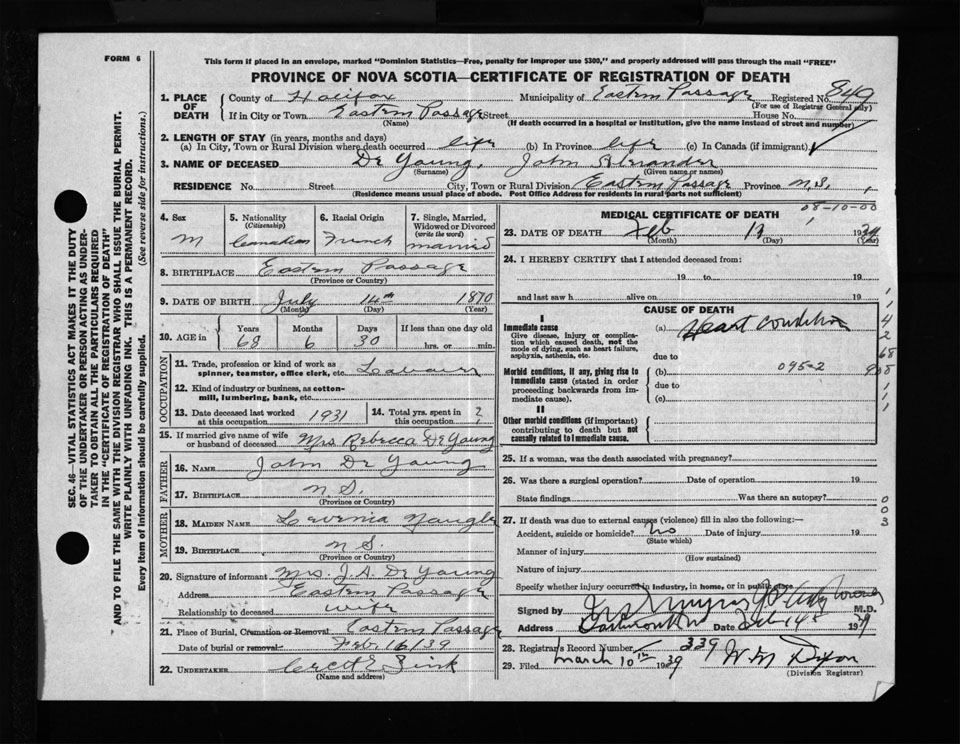 FORM 6
This form if placed in an envelope, marked "Dominion Statistics—Free, penalty for improper use $300," and properly addressed will pass through the mail "FREE"
PROVINCE OF NOVA SCOTIA—CERTIFICATE OF REGISTRATION OF DEATH
SEC. 46—VITAL STATISTICS ACT MAKES IT THE DUTY
OF THE UNDERTAKER OR PERSON ACTING AS UNDER-
TAKER TO OBTAIN ALL THE PARTICULARS REQUIRED
IN THE "CERTIFICATE OF REGISTRATION OF DEATH"
AND TO FILE THE SAME WITH THE DIVISION REGISTRAR WHO SHALL ISSUE THE BURIAL PERMIT.
WRITE PLAINLY WITH UNFADING INK. THIS IS A PERMANENT RECORD.
Every item of information should be carefully supplied. (See reverse side for instructions.)
1. PLACE OF DEATH
County of Halifax Municipality of Eastern Passage Registered No. 849
(For use of Registrar General only)
If in City or Town Eastern Passage Street House No.
(Name) (If death occurred in a hospital or institution, give the name instead of street and number)
2. LENGTH OF STAY (in years, months and days)
(a) In City, Town or Rural Division where death occurred life (b) In Province life (c) In Canada (if immigrant)
3. NAME OF DECEASED De Young, John Alexander
(Surname) (Given name or names)
RESIDENCE No. Street City, Town or Rural Division Eastern Passage Province N.S.
(Residence means usual place of abode. Post Office Address for residents in rural parts not sufficient)
4. Sex M
5. Nationality (Citizenship) Canadian
6. Racial Origin French
7. Single, Married, Widowed or Divorced (write the word) married
8. BIRTHPLACE Eastern Passage
(Province or Country)
9. DATE OF BIRTH July 14th 1870
(Month) (Day) (Year)
10. AGE in Years Months Days If less than one day old
68 6 30 hrs. or min.
OCCUPATION
11. Trade, profession or kind of work as
spinner, teamster, office clerk, etc.
12. Kind of industry or business, as cotton-
mill, lumbering, bank, etc.
13. Date deceased last worked at this occupation 1931
14. Total yrs. spent in this occupation ?
15. If married give name of wife or husband of deceased Mrs Rebecca De Young
FATHER
16. NAME John De Young
17. BIRTHPLACE N S.
(Province or Country)
MOTHER
18. MAIDEN NAME Levenia Naugle
19. BIRTHPLACE N S.
(Province or Country)
20. Signature of informant Mrs. J. A. De Young
Address Eastern Passage
Relationship to deceased wife
21. Place of Burial, Cremation or Removal Eastern Passage
Date of burial or removal Feb. 16/39
22. UNDERTAKER Zink
(Name and address)
MEDICAL CERTIFICATE OF DEATH
08-10-00
23. DATE OF DEATH Feb 13 1939
(Month) (Day) (Year)
24. I HEREBY CERTIFY that I attended deceased from:
19 to 19
and last saw h alive on 19
CAUSE OF DEATH
I
Immediate cause
Give disease, injury or complication which caused death, not the mode of dying, such as heart failure, asphyxia, asthenia, etc.
(a) Heart condition
due to
Morbid conditions, if any, giving rise to immediate cause (stated in order proceeding backwards from immediate cause).
(b) 095-2
due to
(c)
II
Other morbid conditions (if important) contributing to death but not causally related to immediate cause.
25. If a woman, was the death associated with pregnancy?
26. Was there a surgical operation? Date of operation 19
State findings Was there an autopsy?
27. If death was due to external causes (violence) fill in also the following:—
Accident, suicide or homicide? No Date of injury 19
(State which)
Manner of injury
(How sustained)
Nature of injury
Specify whether injury occurred in industry, in home, or in public place
Signed by M.D.
Address Dartmouth N.S. Date Feb 14th 1939
28. Registrar's Record Number 339
29. Filed March 10th 1939 W M Dixon
(Division Registrar)